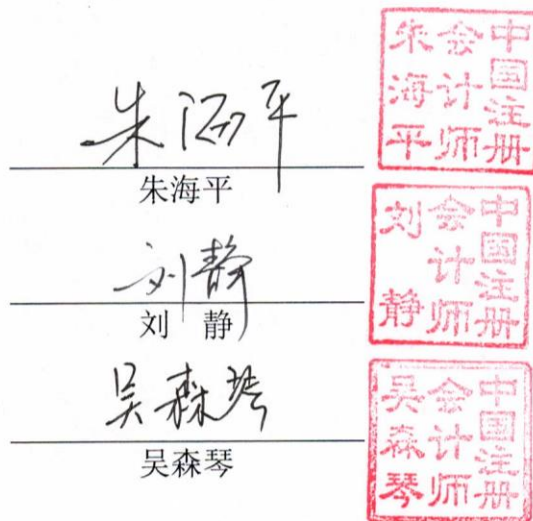 朱海平
朱海平
中国注册
会计师
朱海平
刘静
刘 静
中国注册
会计师
刘静
吴森琴
吴森琴
中国注册
会计师
吴森琴